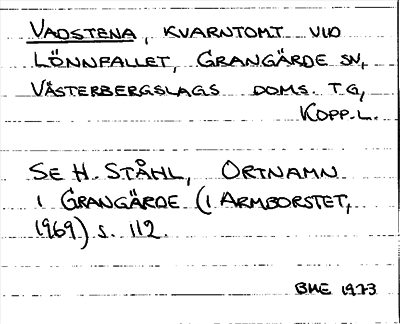 VADSTENA, KVARNTOMT VID
LÖNNFALLET, GRANGÄRDE SN,
VÄSTERBERGSLAGS DOMS. T.G,
KOPP.L.
SE H. STÅHL, ORTNAMN
I GRANGÄRDE (I ARMBORSTET,
1969) S. 112.
BHE 1973